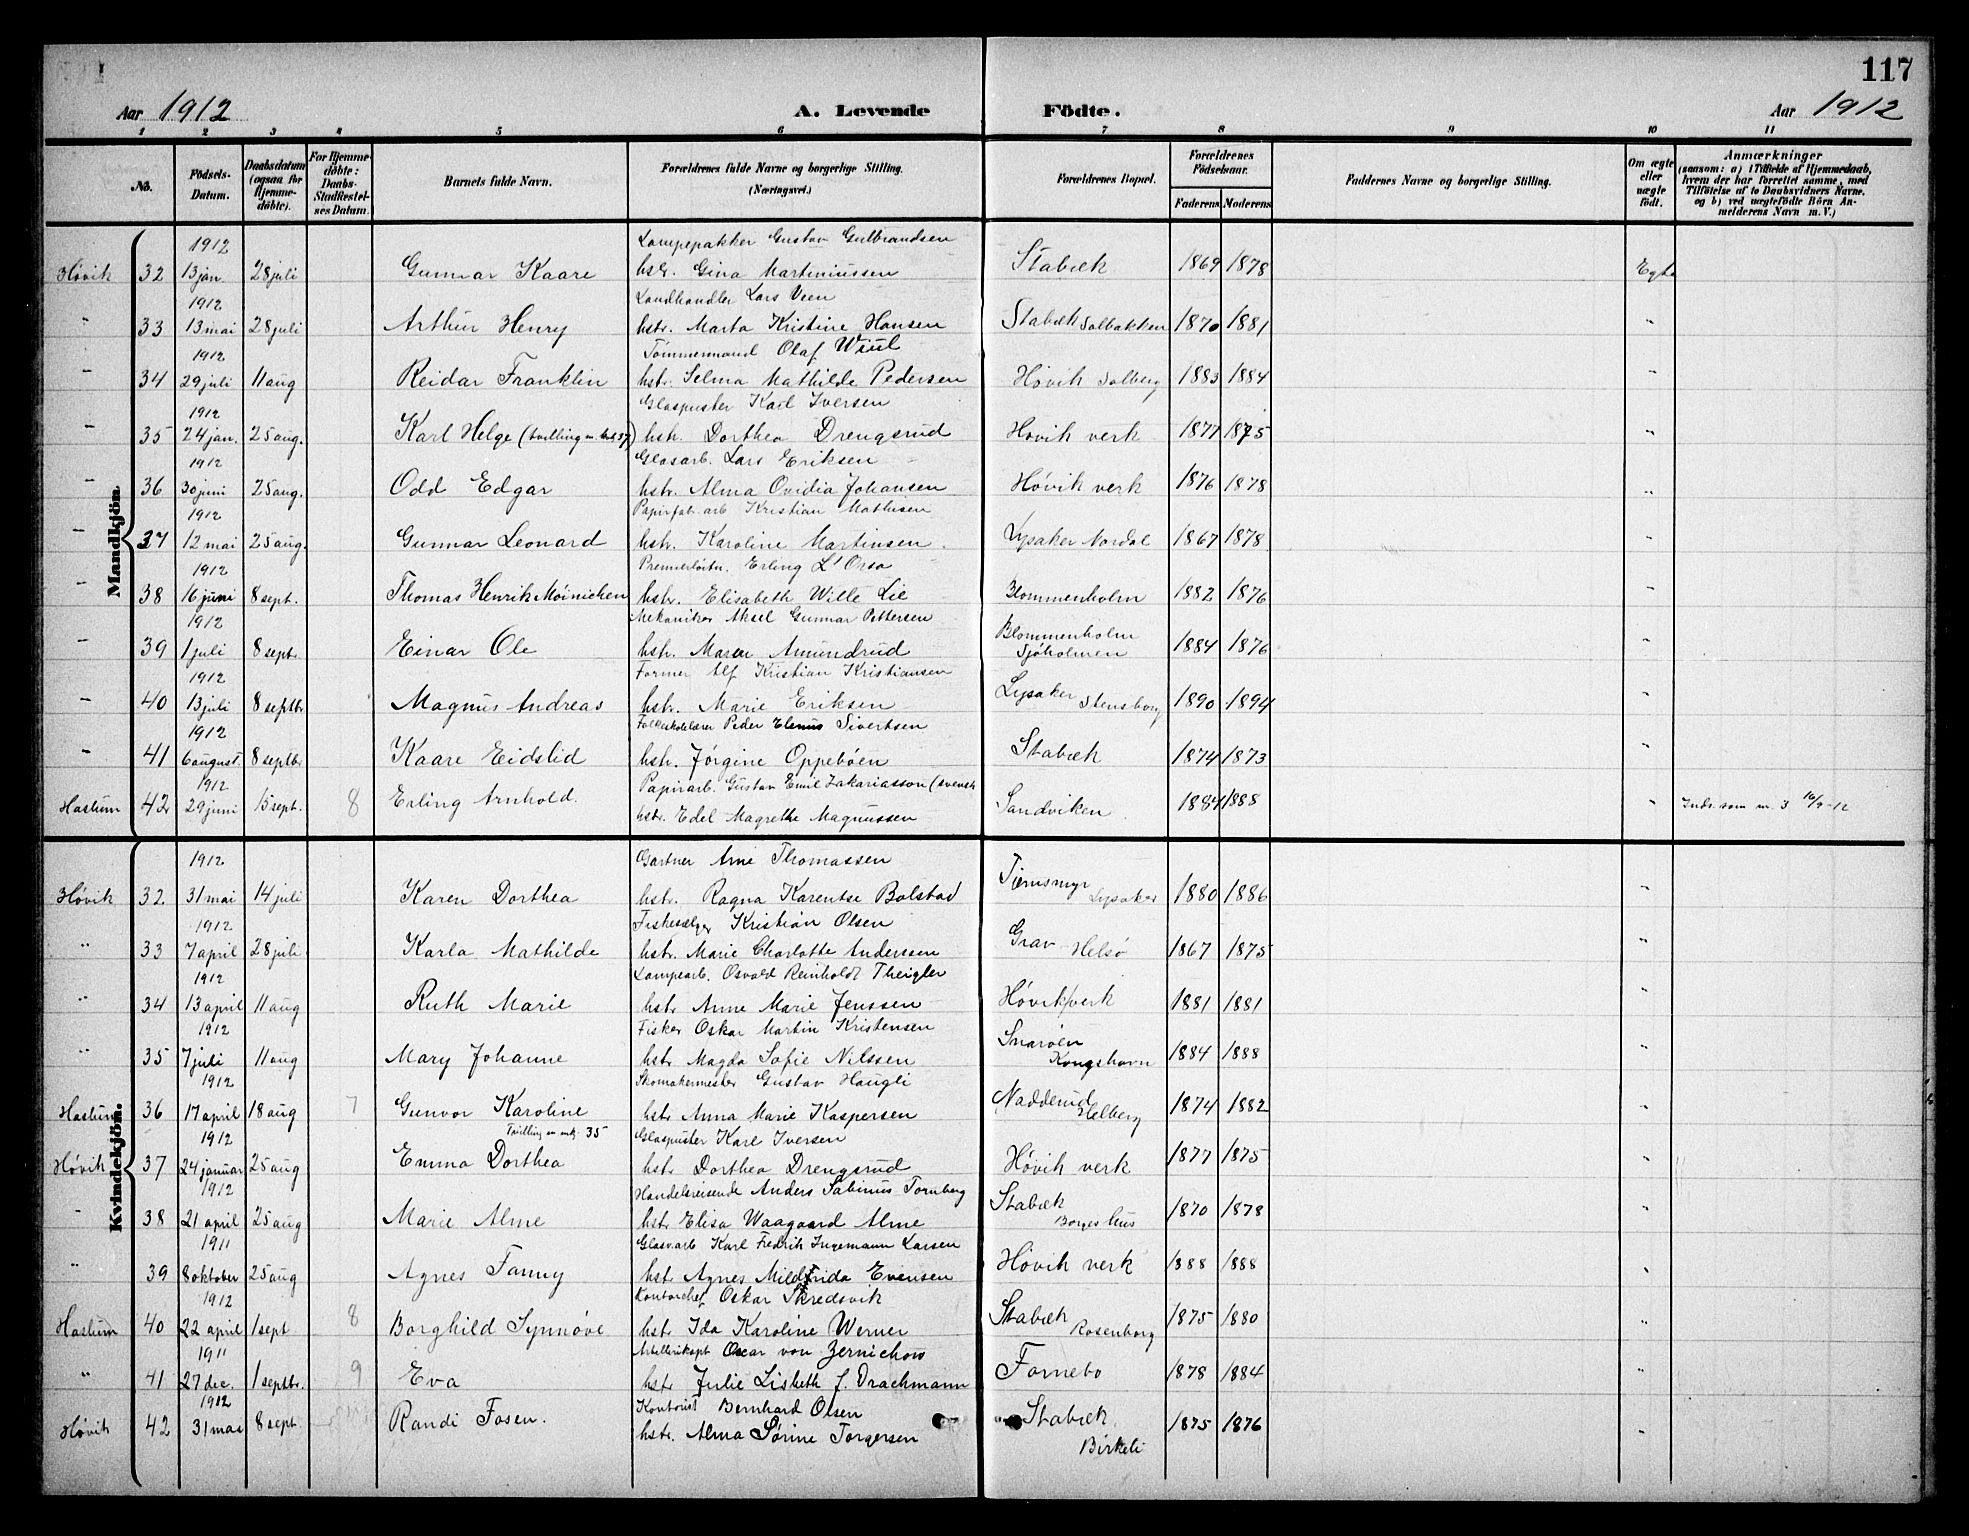 117
Aar 1912 A. Levende Födte. Aar 1912
1 2 3 4 5 6 7 8 9 10 11
No. Födsels-Datum. Daabsdatum (ogsaa for Hjemme-döbte). For Hjemme-döbte: Daabs-Stadfæstel-ses Datum. Barnets fulde Navn. Forældrenes fulde Navne og borgerlige Stilling. (Næringsvei.) Forældrenes Bopæl. Forældrenes Födselsaar. Faderens Moderens Faddernes Navne og borgerlige Stilling. Om ægte eller uægte födt. Anmærkninger (saasom: a) i Tilfælde af Hjemmedaab, hvem der har forrettet samme, med Tilföielse af to Daabsvidners Navne. og b) ved uægtefödte Börn An-melderens Navn m. V.)
Mandkjön.
1912 Lampepakker Gustav Gulbrandsen
Høvik 32 13 jan. 28 juli Gunnar Kaare hstr. Gina Martiniussen Stabæk 1869 1878 Egte
1912 Landhandler Lars Veen
" 33 13 mai 28 juli Arthur Henry hstr. Marta Kristine Hansen Stabæk Solbakken 1870 1881 "
1912 Tømmermand Olaf Wiul
" 34 29 juli 11 aug Reidar Franklin hstr. Selma Mathilde Pedersen Høvik Solberg 1883 1884 "
1912 Glaspuster Karl Iversen
" 35 24 jan. 25 aug. Karl Helge (tvilling m. kvk 37) hstr. Dorthea Drengsrud Høvik verk 1877 1875 "
1912 Glasarb. Lars Eriksen
" 36 30 juni 25 aug. Odd Edgar hstr. Alma Ovidia Johansen Høvik verk 1876 1878 "
1912 Papirfab.arb Kristian Mathisen
" 37 12 mai 25 aug. Gunnar Leonard hstr. Karoline Martinsen Lysaker Nordal 1867 1878 "
1912 Premierløitn. Erling L'Orsa
" 38 16 juni 8 sept. Thomas Henrik Møinichen hstr. Elisabeth Wille Lie Blommenholm 1882 1876 "
1912 Mekaniker Aksel Gunnar Pettersen
" 39 1 juli 8 sept. Einar Ole hstr. Maren Amundrud Blommenholm Sjøholmen 1884 1876 "
1912 Former Alf Kristian Kristiansen
" 40 13 juli 8 septbr Magnus Andreas hstr. Marie Eriksen Lysaker Stensborg 1890 1894 "
1912 Folkeskolelærer Peder Elenus Sivertsen
" 41 6 august. 8 septbr Kaare Eidslid hstr. Jørgine Oppebøen Stabæk 1874 1873 "
1912 Papirarb. Gustav Emil Zakariasson (svensk
Haslum 42 29 juni 15 sept. 8 Erling Arnhold. hstr. Edel Magrethe Magnussen Sandviken 1884 1888 " Inds. som m. 3 16/9-12
Kvindekjön.
1912 Gartner Arne Thomassen
Høvik 32 31 mai 14 juli Karen Dorthea hstr. Ragna Karentse Bolstad Tjernsmyr Lysaker 1880 1886 "
1912 Fiskesælger Kristian Olsen
" 33 7 april 28 juli Karla Mathilde hstr. Marie Charlotte Anderssen Grav Helsø 1867 1875 "
1912 Lampearb. Osvald Reinholdt Theigler
" 34 13 april 11 aug Ruth Marie hstr Anne Marie Jenssen Høvik verk 1881 1881 "
1912 Fisker Oskar Martin Kristensen
" 35 7 juli 11 aug Mary Johanne hstr. Magda Sofie Nilssen Snarøen Kongshavn 1884 1888 "
1912 Skomakermester Gustav Haugli
Haslum 36 17 april 18 aug 7 Gunvor Karoline hstr. Anna Marie Kaspersen Nadderud Helberg 1874 1882 "
1912 Tvilling m mk. 35 Glaspuster Karl Iversen
Høvik 37 24 januar 25 aug Emma Dorthea hstr Dorthea Drengsrud Høvik verk 1877 1875 "
1912 Handelsreisende Anders Sabinus Tornberg
" 38 21 april 25 aug Marie Alme hstr Elisa Waagaard Alme Stabæk Borgeshus 1870 1878 "
1911 Glasv.arb Karl Fredrik Ingemann Larsen
" 39 8 oktober 25 aug Agnes Fanny hstr Agnes Mildfrida Evensen Høvik verk 1888 1888 "
1912 Kontorchef Oskar Skredsvik
Haslum 40 22 april 1 sept 8 Borghild Synnøve hstr Ida Karoline Werner Stabæk Rosenborg 1875 1880 "
1911 Artillerikapt Oscar von Zernichow
" 41 27 dec. 1 septbr. 9 Eva hstr Julie Lisbeth f. Drachmann Fornebo 1878 1884 "
1912 Kontorist Bernhard Olsen
Høvik 42 31 mai 8 sept. Randi Fosen. hstr. Alma Sørine Torgersen Stabæk Birkeli 1875 1876 "